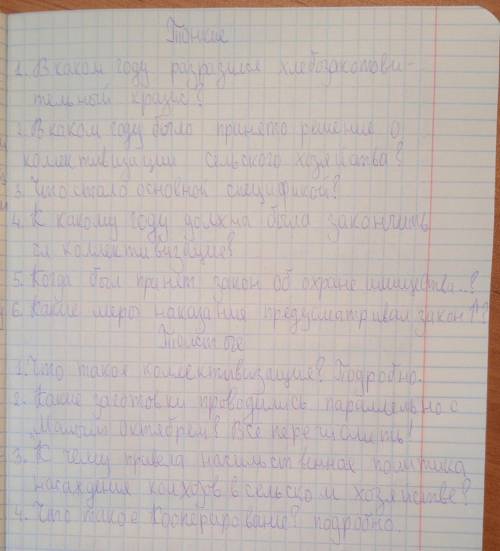 Тонкие
1. В каком году разразился хлебозаготови-
тельный кризис?
2. В каком году было принято решение о
коллективизации сельского хозяйства?
3. Что стало основной спецификой?
4. К какому году должна была закончить
ся коллективизация?
5. Когда был принят закон об охране имущества..?
6. Какие меры наказания предусматривал закон↑?
Толстые
1. Что такое коллективизация? Подробно.
2. Какие заготовки проводились параллельно с
"Малым Октябрем? Все перечислить!
3. К чему привела насильственная политика
насаждения колхозов в сельском хозяйстве?
4. Что такое Кооперирование? подробно.